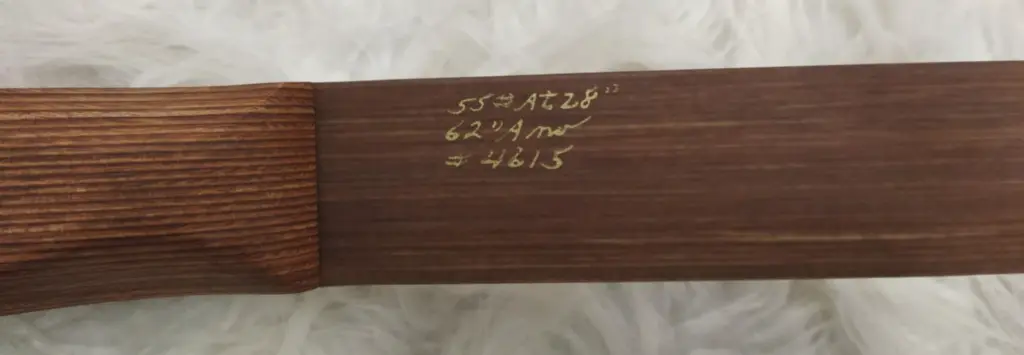 55# At 28"
62" Amo
# 4615